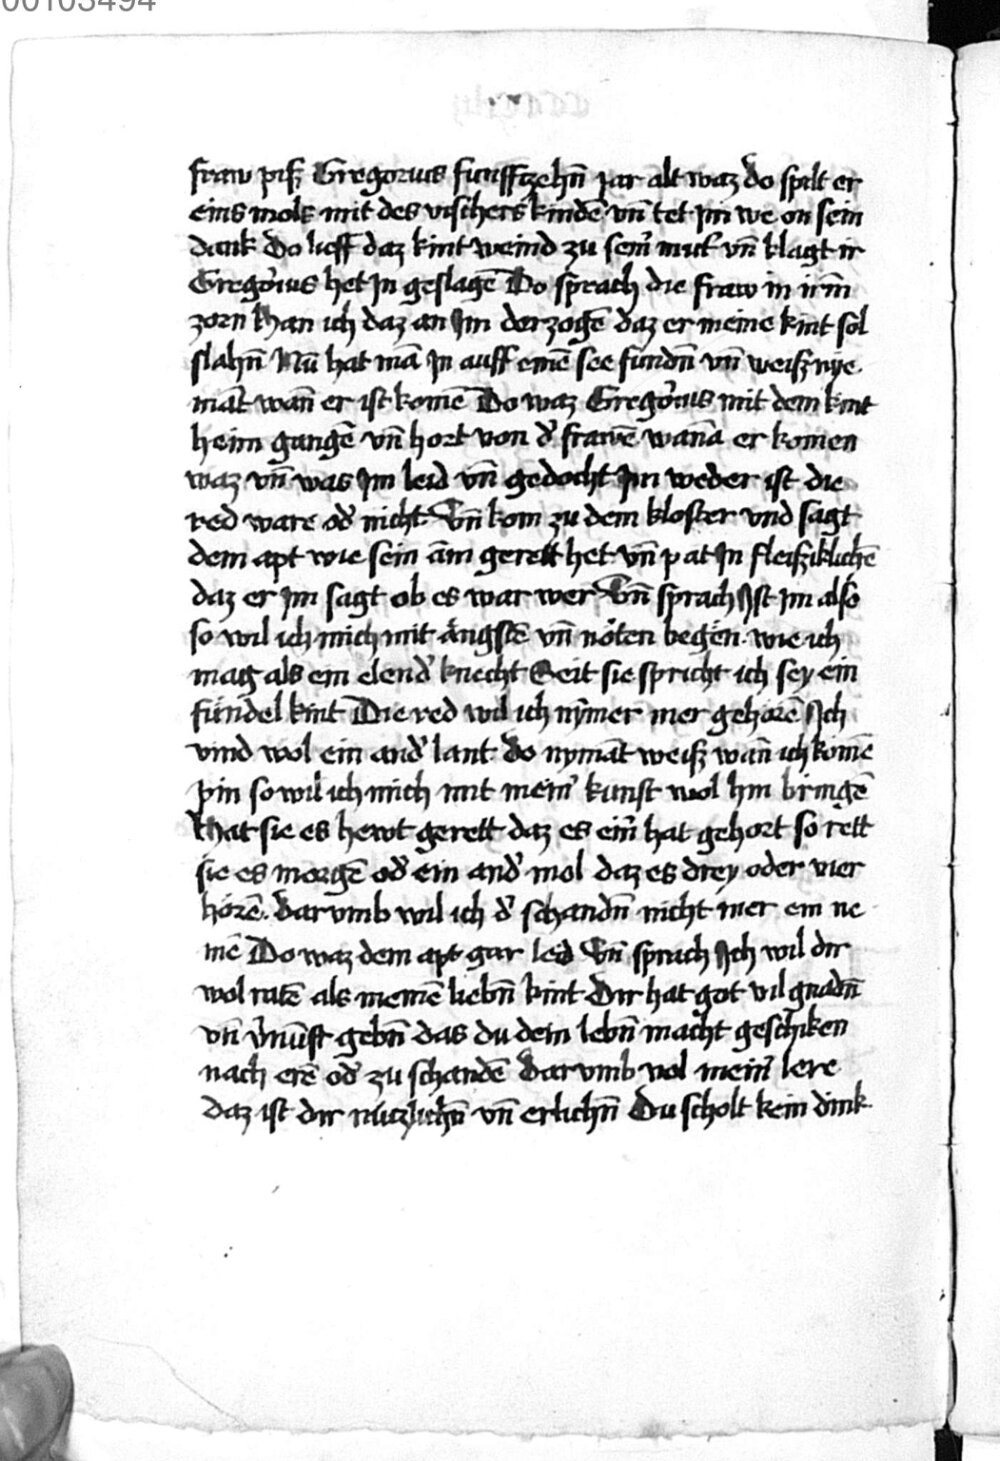 00103494
fraw piß Gregorius funffczehn̄ jar alt waz do spilt er
eins mols mit des vischers kindē vn̄ tet jm we on sein
dank Do lieff daz kint weind zu sein̾ mut̾ vn̄ klagt ir
Gregor̾ius het Jn geslagē Do sprach die fraw in irm̄
zorn khan ich daz an Jm derzogē daz er meine kint sol
slahn̄ Nu̅ hat ma̅ Jn auff eine̅ see fundn̄ vn̄ weiß nye
ma̅t wan̄ er ist kome̅ Do waz Gregor̾ius mit dem kint
heim gange̅ vn̄ hort von d̾ frawe̅ wan̄a er komen
waz vn̄ was Jm leid vn̄ gedocht Jm weder ist die
red ware od̾ nicht Vn̄ kom zu dem kloster vnd sagt
dem apt wie sein a̅m gerett het vn̄ pat Jn fleißiklichē
daz er Jm sagt ob es war wer Vn̄ sprach Jst Jm also
so wil ich mich mit ängstē vn̄ nöten begen̄ wie ich
mag als ein elend̾ knecht Seit sie spricht ich sey ein
fündel kint Die red wil ich nȳmer mer gehorē Jch
vind wol ein and̾ lant do nyma̅t weiß wan̄ ich komē
pin so wil ich mich mit mein̾ kunst wol hin bringē
khat sie es hewt gerett daz es ein̄ hat gehort so rett
sie es morgē od̾ ein and̾ mol daz es drey oder vier
hörē. darvmb wil ich d̾ schandn̄ nicht mer ein ne
mē Do waz dem apt gar leid Vn̄ sprach Jch wil dir
wol ratē als meinē liebn̄ kint Dir hat got vil gnadn̄
vn̄ v̾nu̅fft gebn̄ das du dein lebn̄ macht geschiken
nach erē od̾ zu schandē Darvmb vol mein̾ lere
daz ist dir nüczlichn̄ vn̄ erlichn̄ Du scholt kein dink